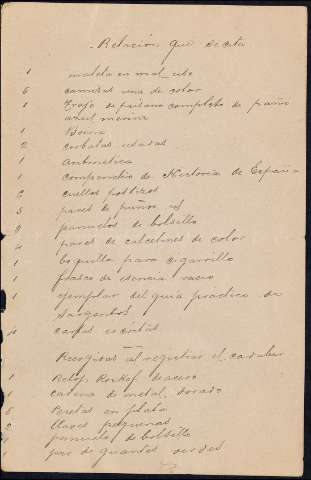 Relación que se cita
1 maleta en mal uso
6 camisas una de color
1 Traje de paisano completo de paño
azul marino
1 Boina
2 corbatas usadas
1 Aritmética
1 compendio de Historia de España
2 cuellos postizos
3 pares de puños
pañuelos de bolsillo
4 pares de calcetines de color
1 boquilla para cigarrillo
1 frasco de esencia vacio
1 ejemplar del guia práctico de
sargentos
cartas escritas
Recogidas al registrar el cadaver
1 Reloj Roskof de acero
1 cadena de metal dorado
5 Pesetas en plata
2 llaves pequeñas
pañuelo de bolsillo
1 par de guantes verdes